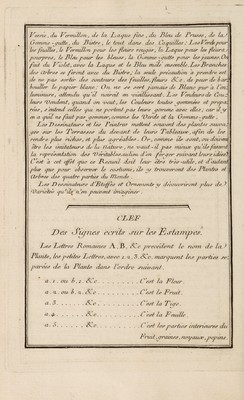 Vasie, du Vermillon, de la Laque fine, du Bleu de Prusse, de la
Gomme-gutte, du Bistre, le tout dans des Coquilles: Les Verds pour
les feuilles, le Vermillon pour les fleurs rouges, la Laque pour les fleurs
pourpres, le Bleu pour les bleues, la Gomme-gutte pour les jaunes. On
fait du Violet, avec la Laque et le Bleu mêlé ensemble. Les Branches
des Arbres se feront avec du Bistre, la seule précaution à prendre est
de ne pas sortir des contours des feuilles, fleurs &c. de peur de bar-
bouiller le papier blanc; On ne se sert jamais de Blanc pour l'en-
luminure, attendu qu'il noircit en vieillissant. Les Vendeurs de Cou-
leurs Vendent, quand on veut, les Couleurs toutes gommées et prépa-
rées, s'entend celles qui ne portent pas leurs gommes avec elles; car il y
en a qu'il ne faut pas gommer, comme les Verds et la Gomme-gutte.
Les Dessinateurs et les Peintres mettent souvent des plantes au
sur les Terrasses du devant de leurs Tableaux, afin de les
rendre plus riches, et plus agréables. Or, comme ils sont, ou doivent
être les imitateurs de la nature, ne vaut-il pas mieux qu'ils fassent
la représentation des Véritables
C'est à cet effet que ce Recueil doit leur être très utile, et d'autant
plus que pour observer le costume, ils y trouveront des Plantes et
Arbres des quatre parties du Monde.
Les Dessinateurs d'Etoffes et Ornements y découvriront plus de
Variétés qu'ils n'en peuvent imaginer.
CLEF
Des Signes ecrits sur les Estampes.
Les Lettres Romaines A, B, &c precedent le nom de la
Plante, les petites Lettres, avec 1, 2, 3, &c. marquent les parties se-
parées de la Plante dans l'ordre suivant.
a.1. ou b.1. &c C'est la Fleur.
a.2. ou b.2. &c C'est le Fruit.
a.3 &c C'est la Tige.
a.4 &c C'est la Feuille
a.5 &c C'est les parties interieures du
Fruit, graines, noyaux, pepins